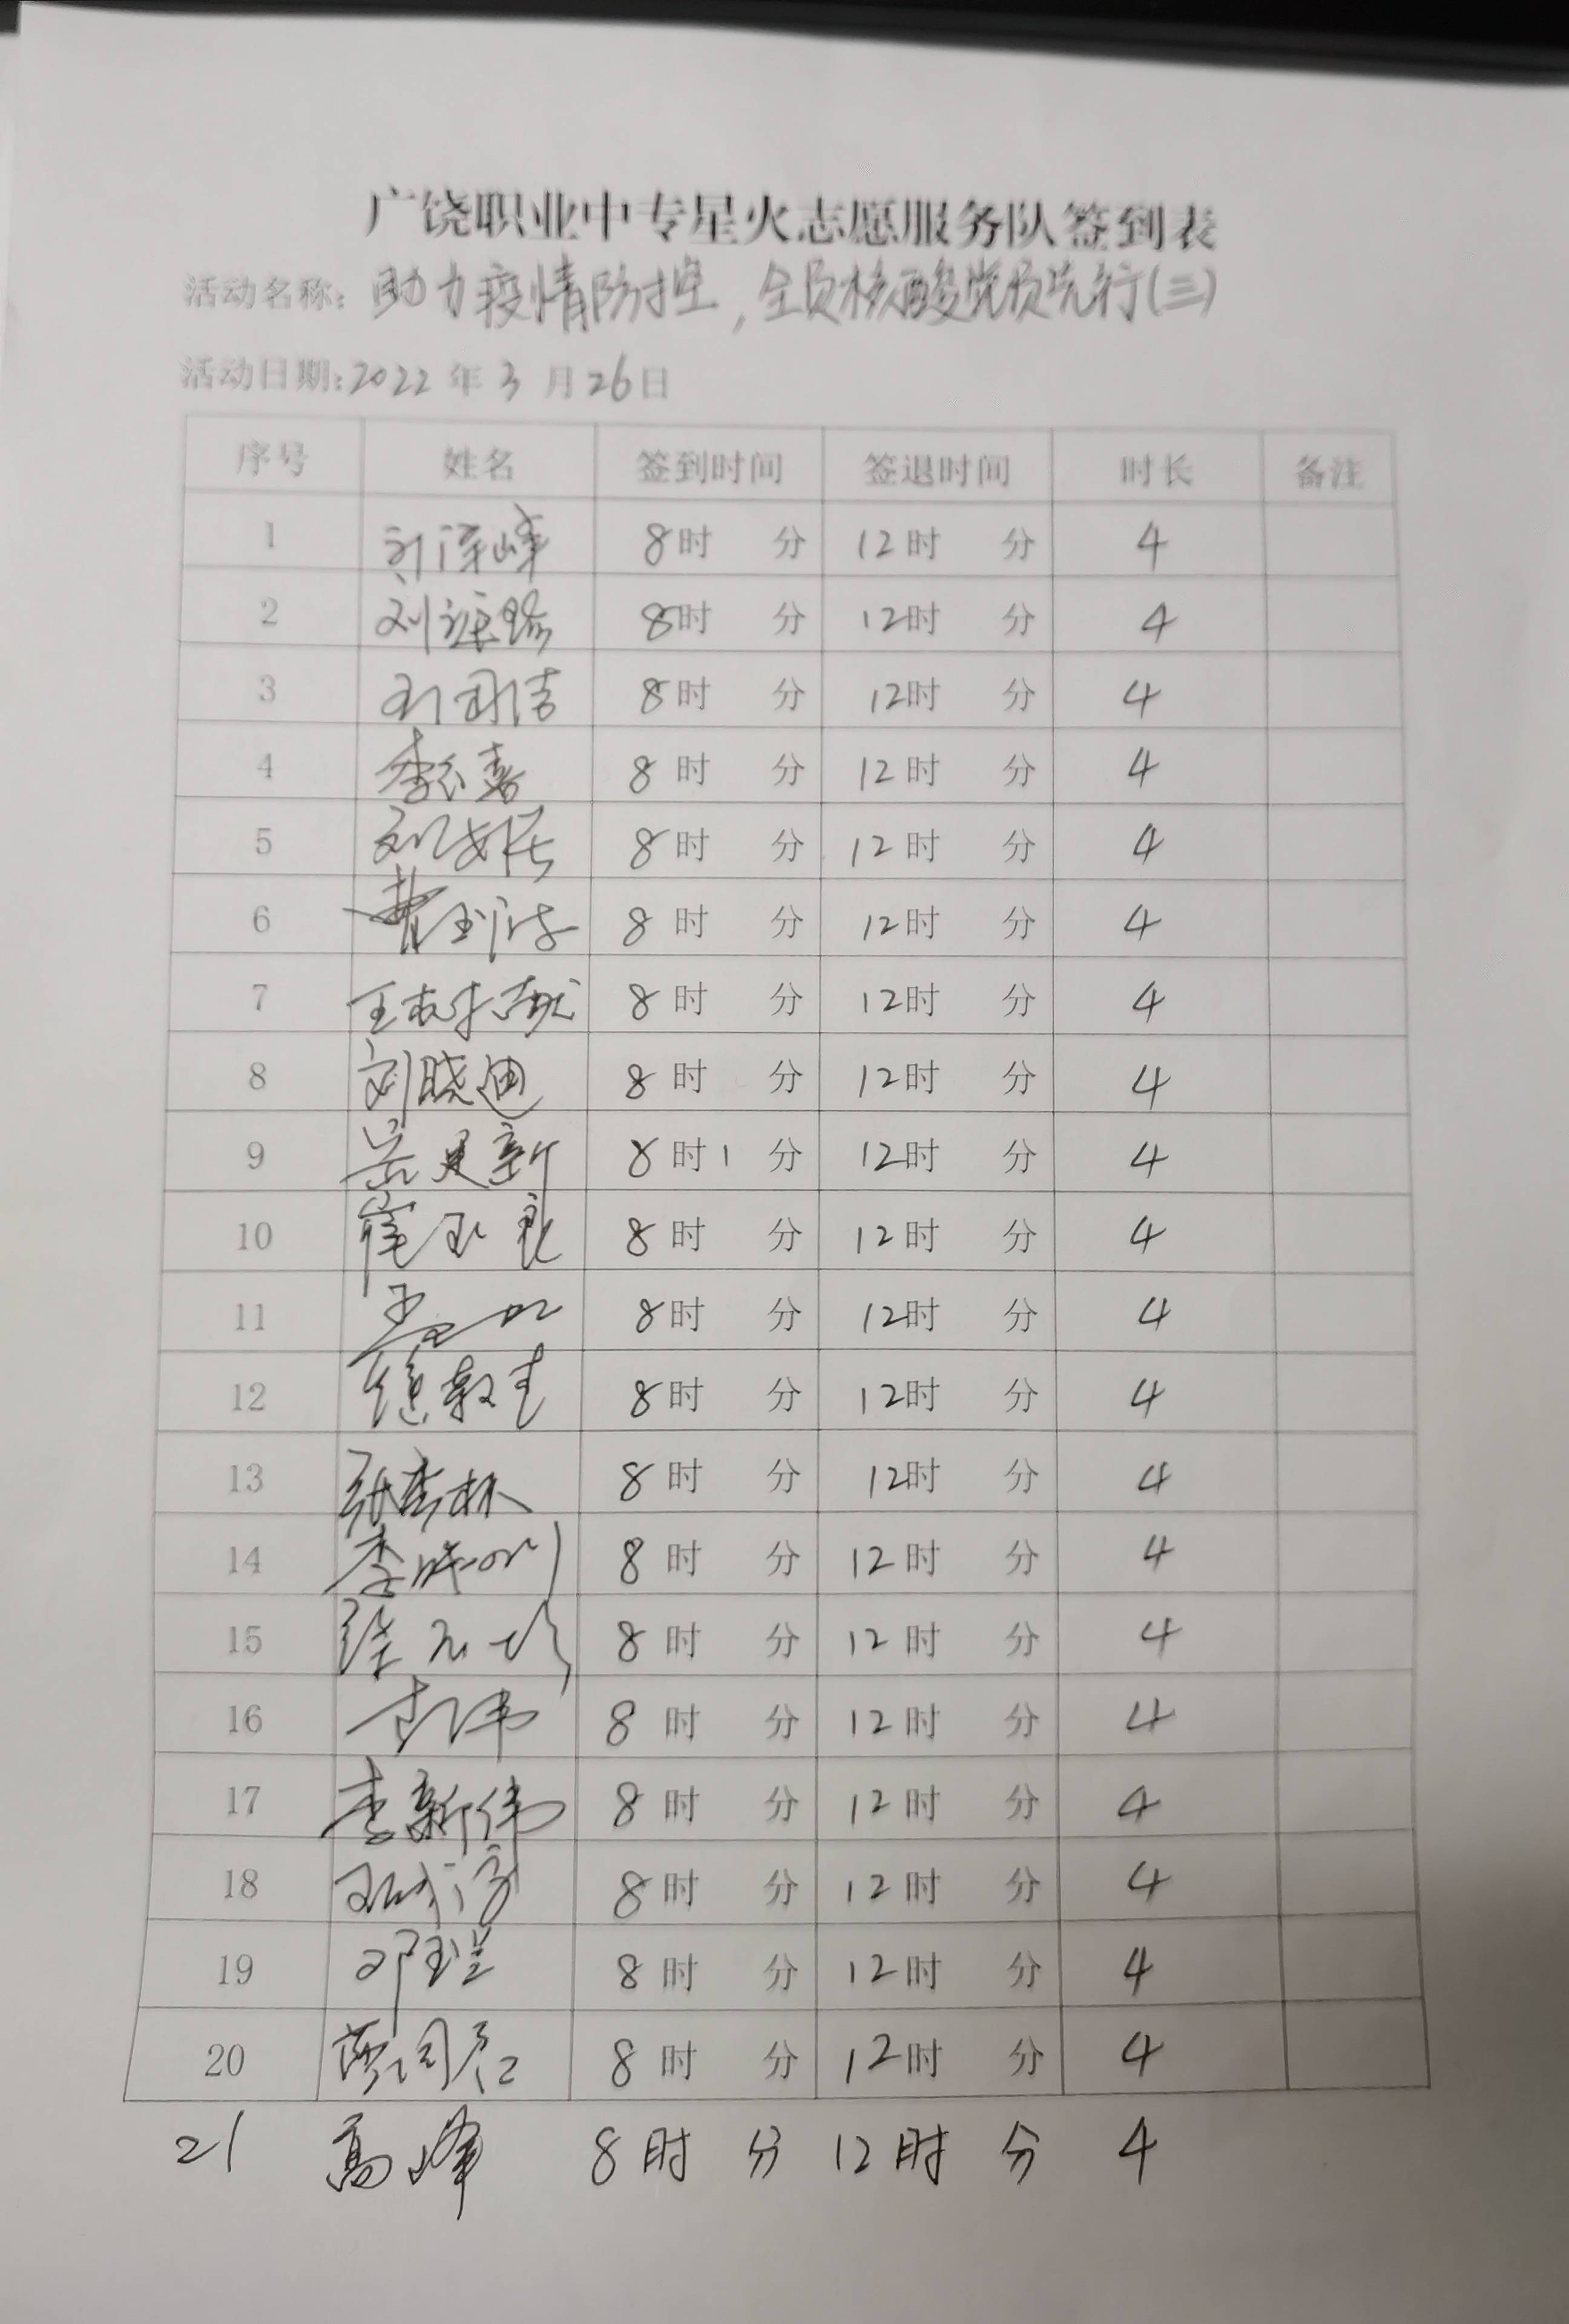 广饶职业中专星火志愿服务队签到表
活动名称：助力疫情防控，全员核酸党员先行(三)
活动日期：2022年3月26日
序号 姓名 签到时间 签退时间 时长 备注
1 8时 分 12时 分 4
2 刘 8时 分 12时 分 4
3 8时 分 12时 分 4
4 李 8时 分 12时 分 4
5 刘 8时 分 12时 分 4
6 8时 分 12时 分 4
7 王 8时 分 12时 分 4
8 刘晓迪 8时 分 12时 分 4
9 新 8时1分 12时 分 4
10 崔玉良 8时 分 12时 分 4
11 8时 分 12时 分 4
12 8时 分 12时 分 4
13 张 林 8时 分 12时 分 4
14 李 8时 分 12时 分 4
15 徐 8时 分 12时 分 4
16 伟 8时 分 12时 分 4
17 李新伟 8时 分 12时 分 4
18 8时 分 12时 分 4
19 邓 8时 分 12时 分 4
20 8时 分 12时 分 4
21 高峰 8时 分 12时 分 4